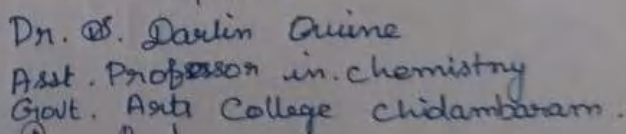 Dr. S. Darlin Quine
Asst. Professor in. chemistry
Govt. Arts College chidambaram.